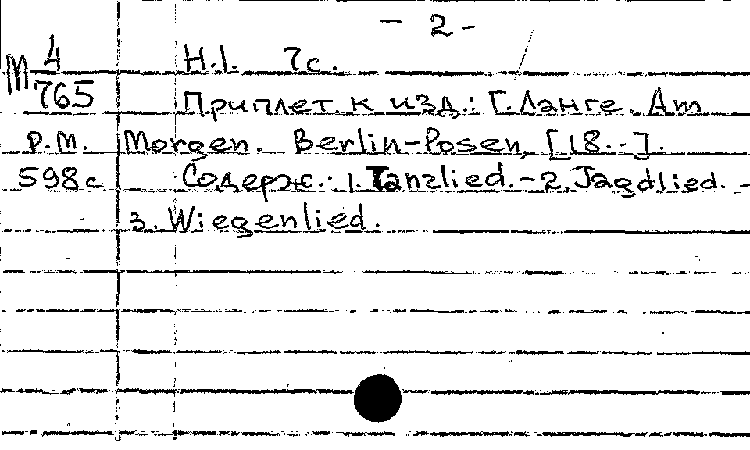 - 2 -
М 4/765 Н.1. 7с.
Приплет. к изд.: Г. Ланге. Am
Р.М. Morgen. Berlin-Posen, [18..].
598с Содерж.: 1. Tanzlied. - 2. Jagdlied. -
3. Wiegenlied.